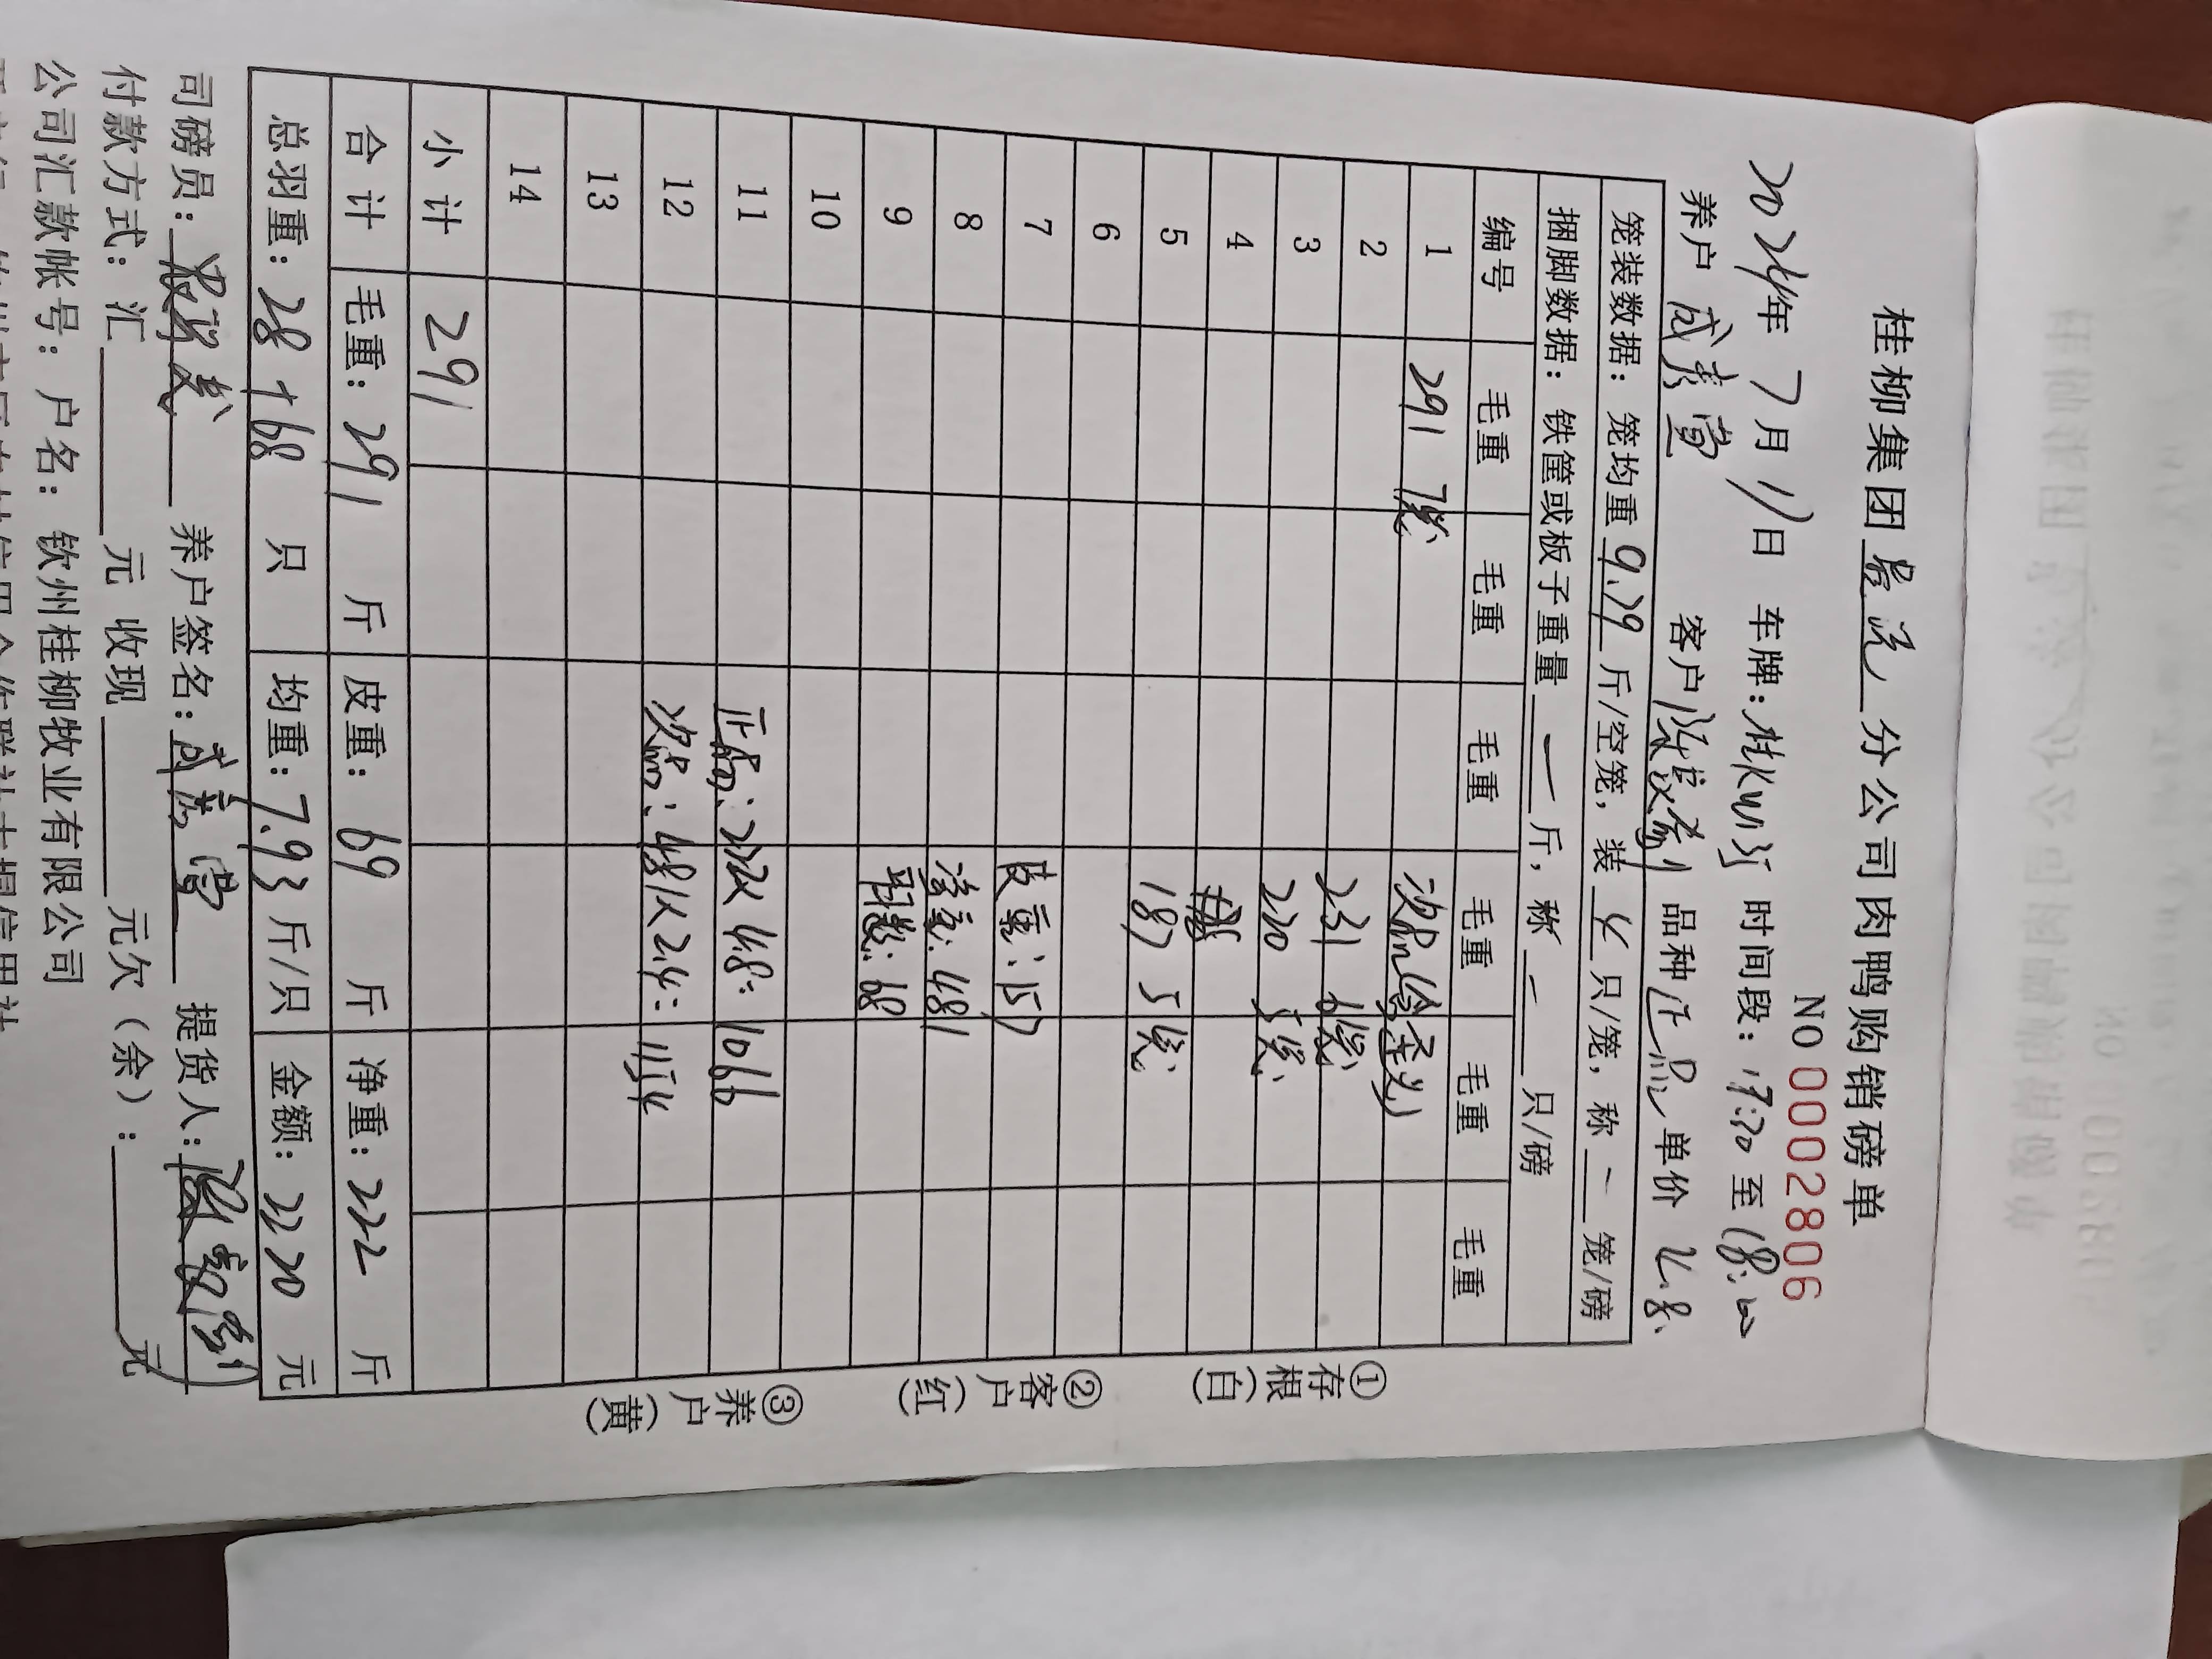 桂柳集团 分公司肉鸭购销磅单
NO 0002806
2024年 7月 11日 车牌: 时间段: 17:30 至 18:00
养户 客户 品种 正品 单价 4.8
笼装数据: 笼均重 9.79 斤/空笼, 装 4 只/笼, 称 一 笼/磅
捆脚数据: 铁筐或板子重量 一 斤, 称 一 只/磅
编号 毛重 毛重 毛重 毛重 毛重 毛重
1 291 7笼 次品
2 231 6笼
3 220 5笼
4
5 187 5笼
6
7 皮重: 157
8 净重: 481
9 只数: 68
10
11 正品: 222×4.8= 1066
12 次品: 481×2.4= 1154
13
14
小计 291
合计 毛重: 291 斤 皮重: 69 斤 净重: 222 斤
总羽重: 28+68 只 均重: 7.93 斤/只 金额: 2220 元
司磅员: 养户签名: 提货人:
付款方式: 汇 元 收现 元欠(余): 元
公司汇款帐号: 户名: 钦州桂柳牧业有限公司
①存根(白) ②客户(红) ③养户(黄)